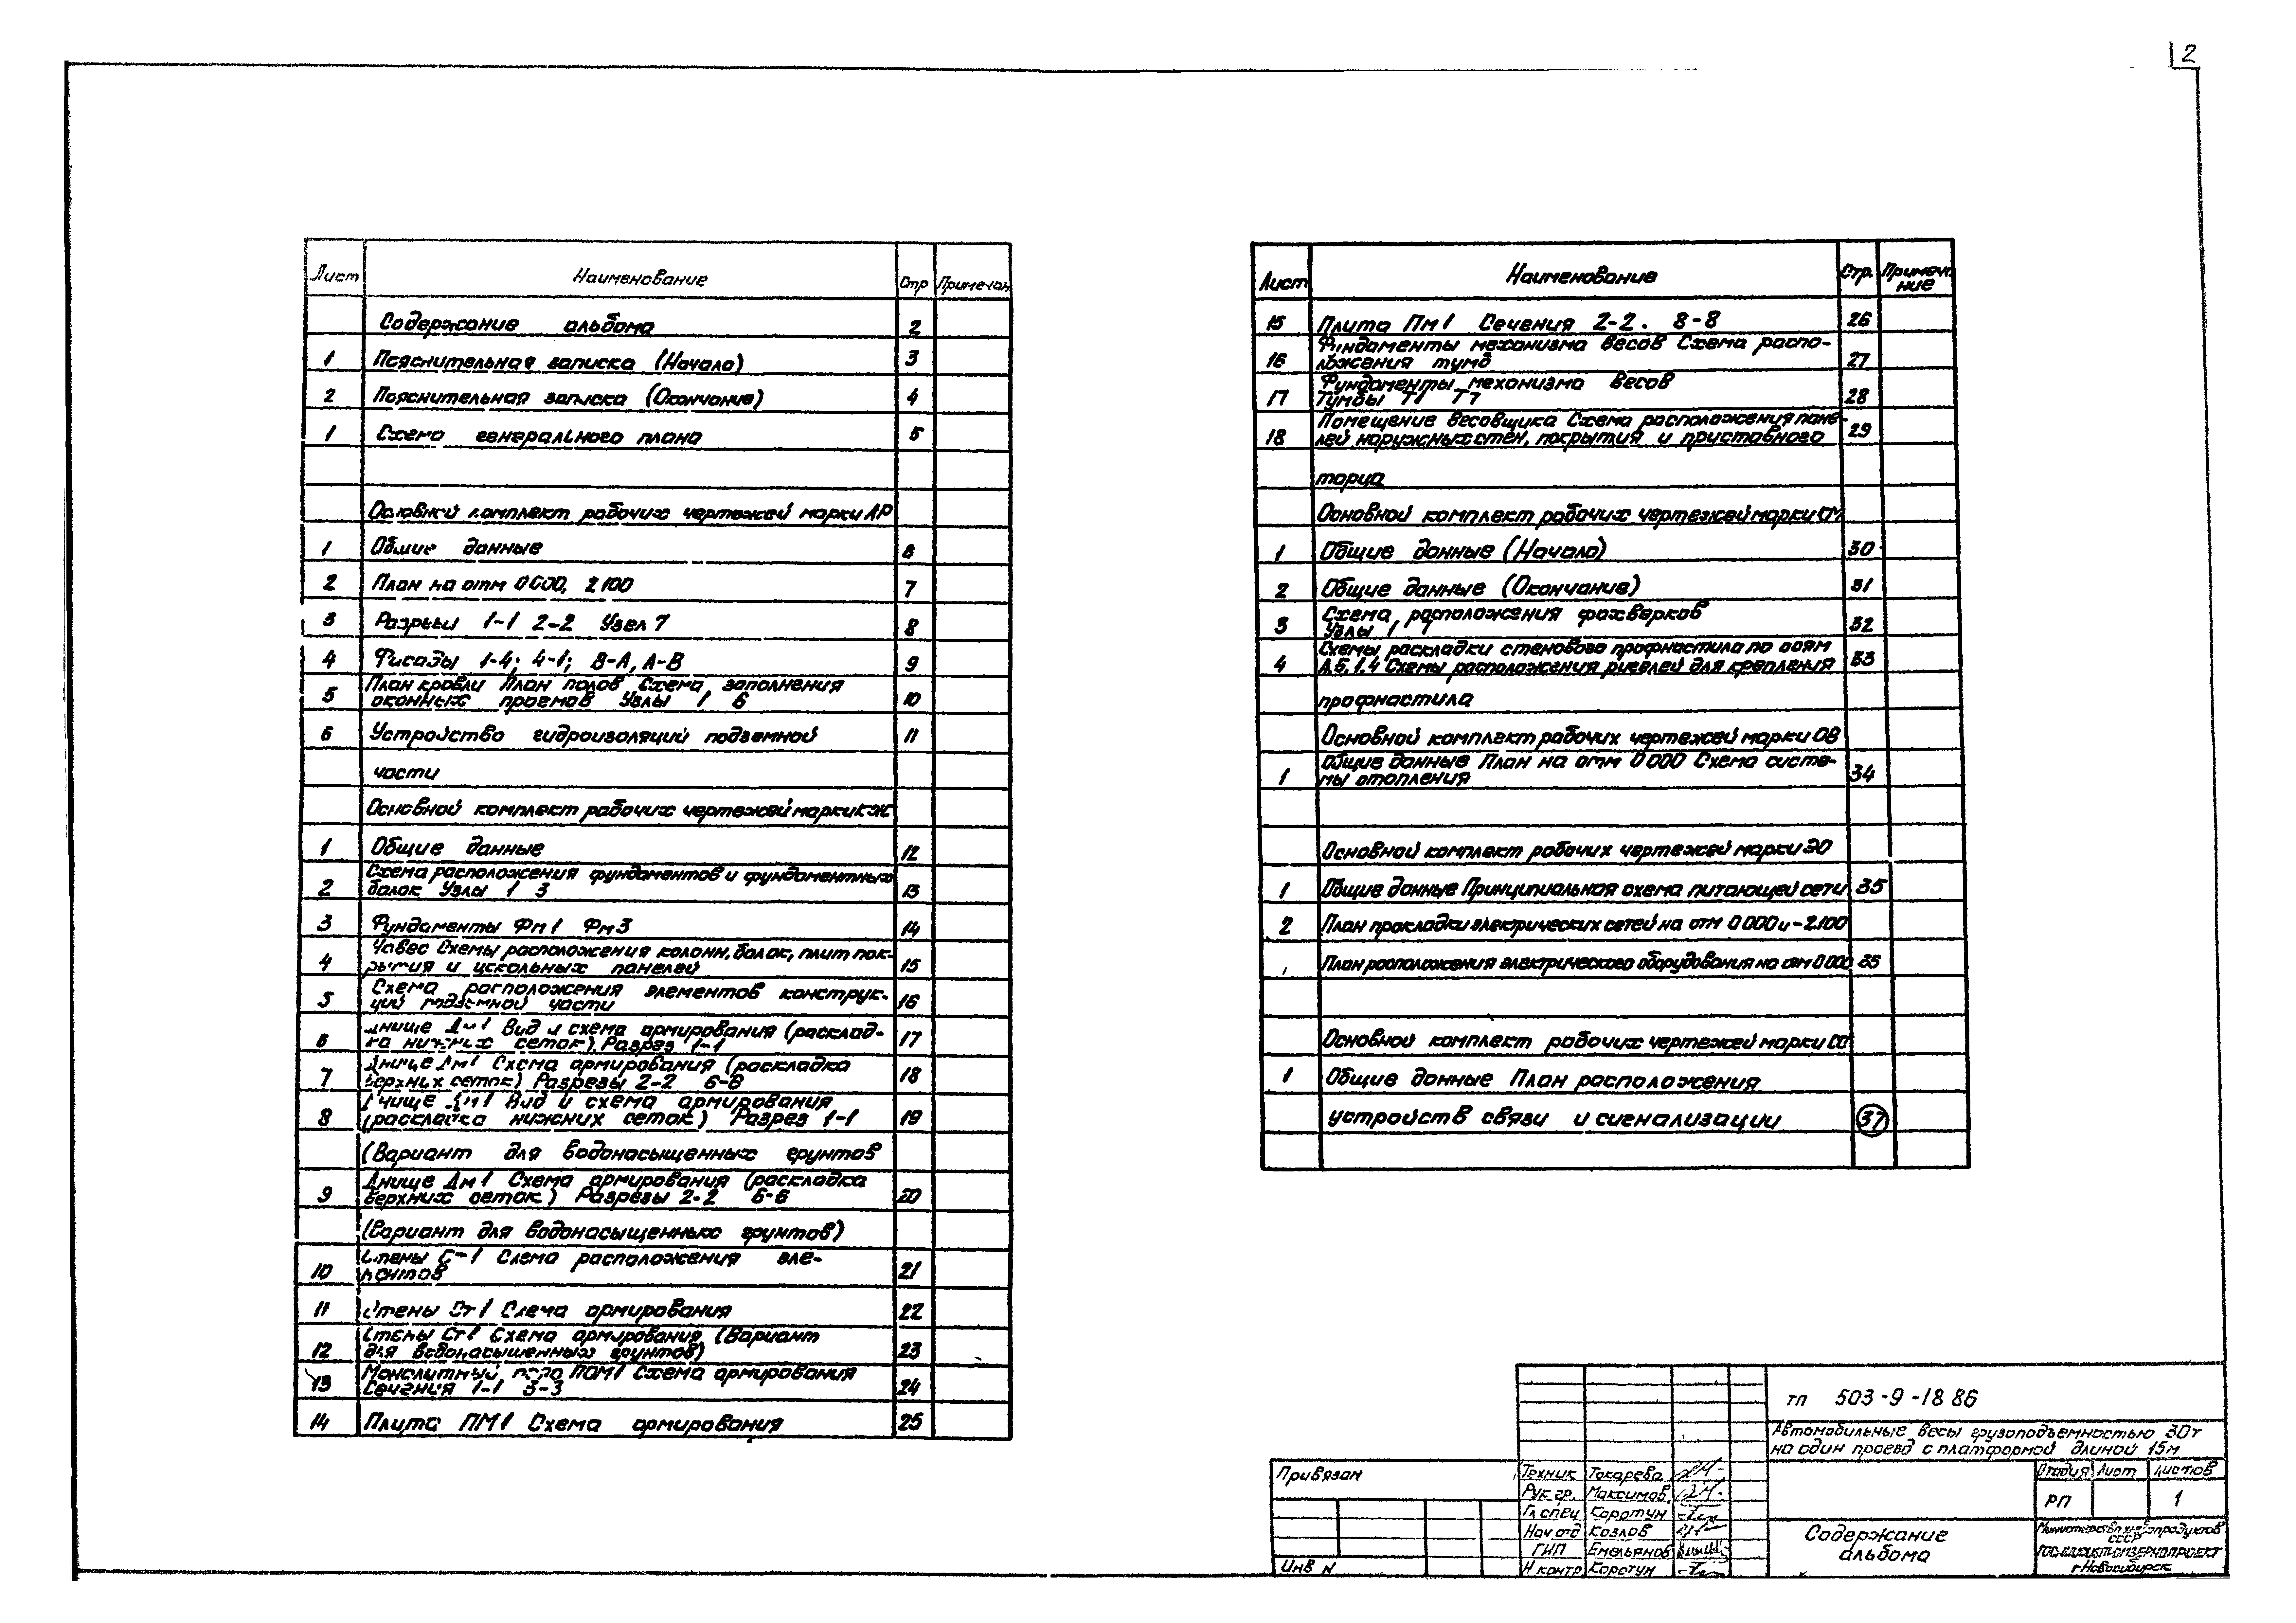 2
Лист Наименование Стр Примечан
Содержание альбома 2
1 Пояснительная записка (Начало) 3
2 Пояснительная записка (Окончание) 4
1 Схема генерального плана 5
Основной комплект рабочих чертежей марки АР
1 Общие данные 6
2 План на отм 0 000, 2 100 7
3 Разрезы 1-1 2-2 Узел 7 8
4 Фасады 1-4; 4-1; В-А, А-В 9
План кровли План полов Схема заполнения
5 оконных проемов Узлы 1 6 10
6 Устройство гидроизоляций подземной 11
части
Основной комплект рабочих чертежей марки КЖ
1 Общие данные 12
Схема расположения фундаментов и фундаментных
2 балок Узлы 1 3 13
3 Фундаменты Фм1 Фм3 14
Навес Схемы расположения колонн, балок, плит пок-
4 рытия и цокольных панелей 15
Схема расположения элементов конструк-
5 ций подземной части 16
Днище Дм1 Вид и схема армирования (расклад-
6 ка нижних сеток). Разрез 1-1 17
Днище Дм1 Схема армирования (раскладка
7 верхних сеток) Разрезы 2-2 6-6 18
Днище Дм1 Вид и схема армирования
8 (раскладка нижних сеток) Разрез 1-1 19
(Вариант для водонасыщенных грунтов
Днище Дм1 Схема армирования (раскладка
9 верхних сеток) Разрезы 2-2 6-6 20
(Вариант для водонасыщенных грунтов)
Стены С-1 Схема расположения эле-
10 ментов 21
11 Стены Ст1 Схема армирования 22
Стены Ст1 Схема армирования (Вариант
12 для водонасыщенных грунтов) 23
Монолитный ПОМ1 Схема армирования
13 Сечения 1-1 3-3 24
14 Плита ПМ1 Схема армирования 25
Лист Наименование Стр. Примеча
ние
15 Плита Пм1 Сечения 2-2. 8-8 26
Фундаменты механизма весов Схема распо-
16 ложения тумб 27
Фундаменты механизма весов
17 Тумбы Т1 Т7 28
Помещение весовщика Схема расположения пане-
18 лей наружных стен, покрытия и приставного 29
торца
Основной комплект рабочих чертежей марки КМ
1 Общие данные (Начало) 30
2 Общие данные (Окончание) 31
Схема расположения фахверков
3 Узлы 1 7 32
Схемы раскладки стенового профнастила по осям
4 А, Б, 1, 4 Схемы расположения ригелей для крепления 33
профнастила
Основной комплект рабочих чертежей марки ОВ
Общие данные План на отм 0 000 Схема систе-
1 мы отопления 34
Основной комплект рабочих чертежей марки ЭО
1 Общие данные Принципиальная схема питающей сети 35
2 План прокладки электрических сетей на отм 0 000 и -2.100
План расположения электрического оборудования на отм 0 000 35
Основной комплект рабочих чертежей марки СС
1 Общие данные План расположения
устройств связи и сигнализации 37
тп 503-9-18 86
Автомобильные весы грузоподъемностью 30т
на один проезд с платформой длиной 15м
Привязан
Инв N
Техник Токарева
Рук гр. Максимов
Гл спец Коротун
Нач отд Козлов
ГИП Емельянов
Н контр Коротун
Стадия Лист Листов
РП 1
Содержание
альбома
Министерство хлебопродуктов
СССР
г Новосибирск